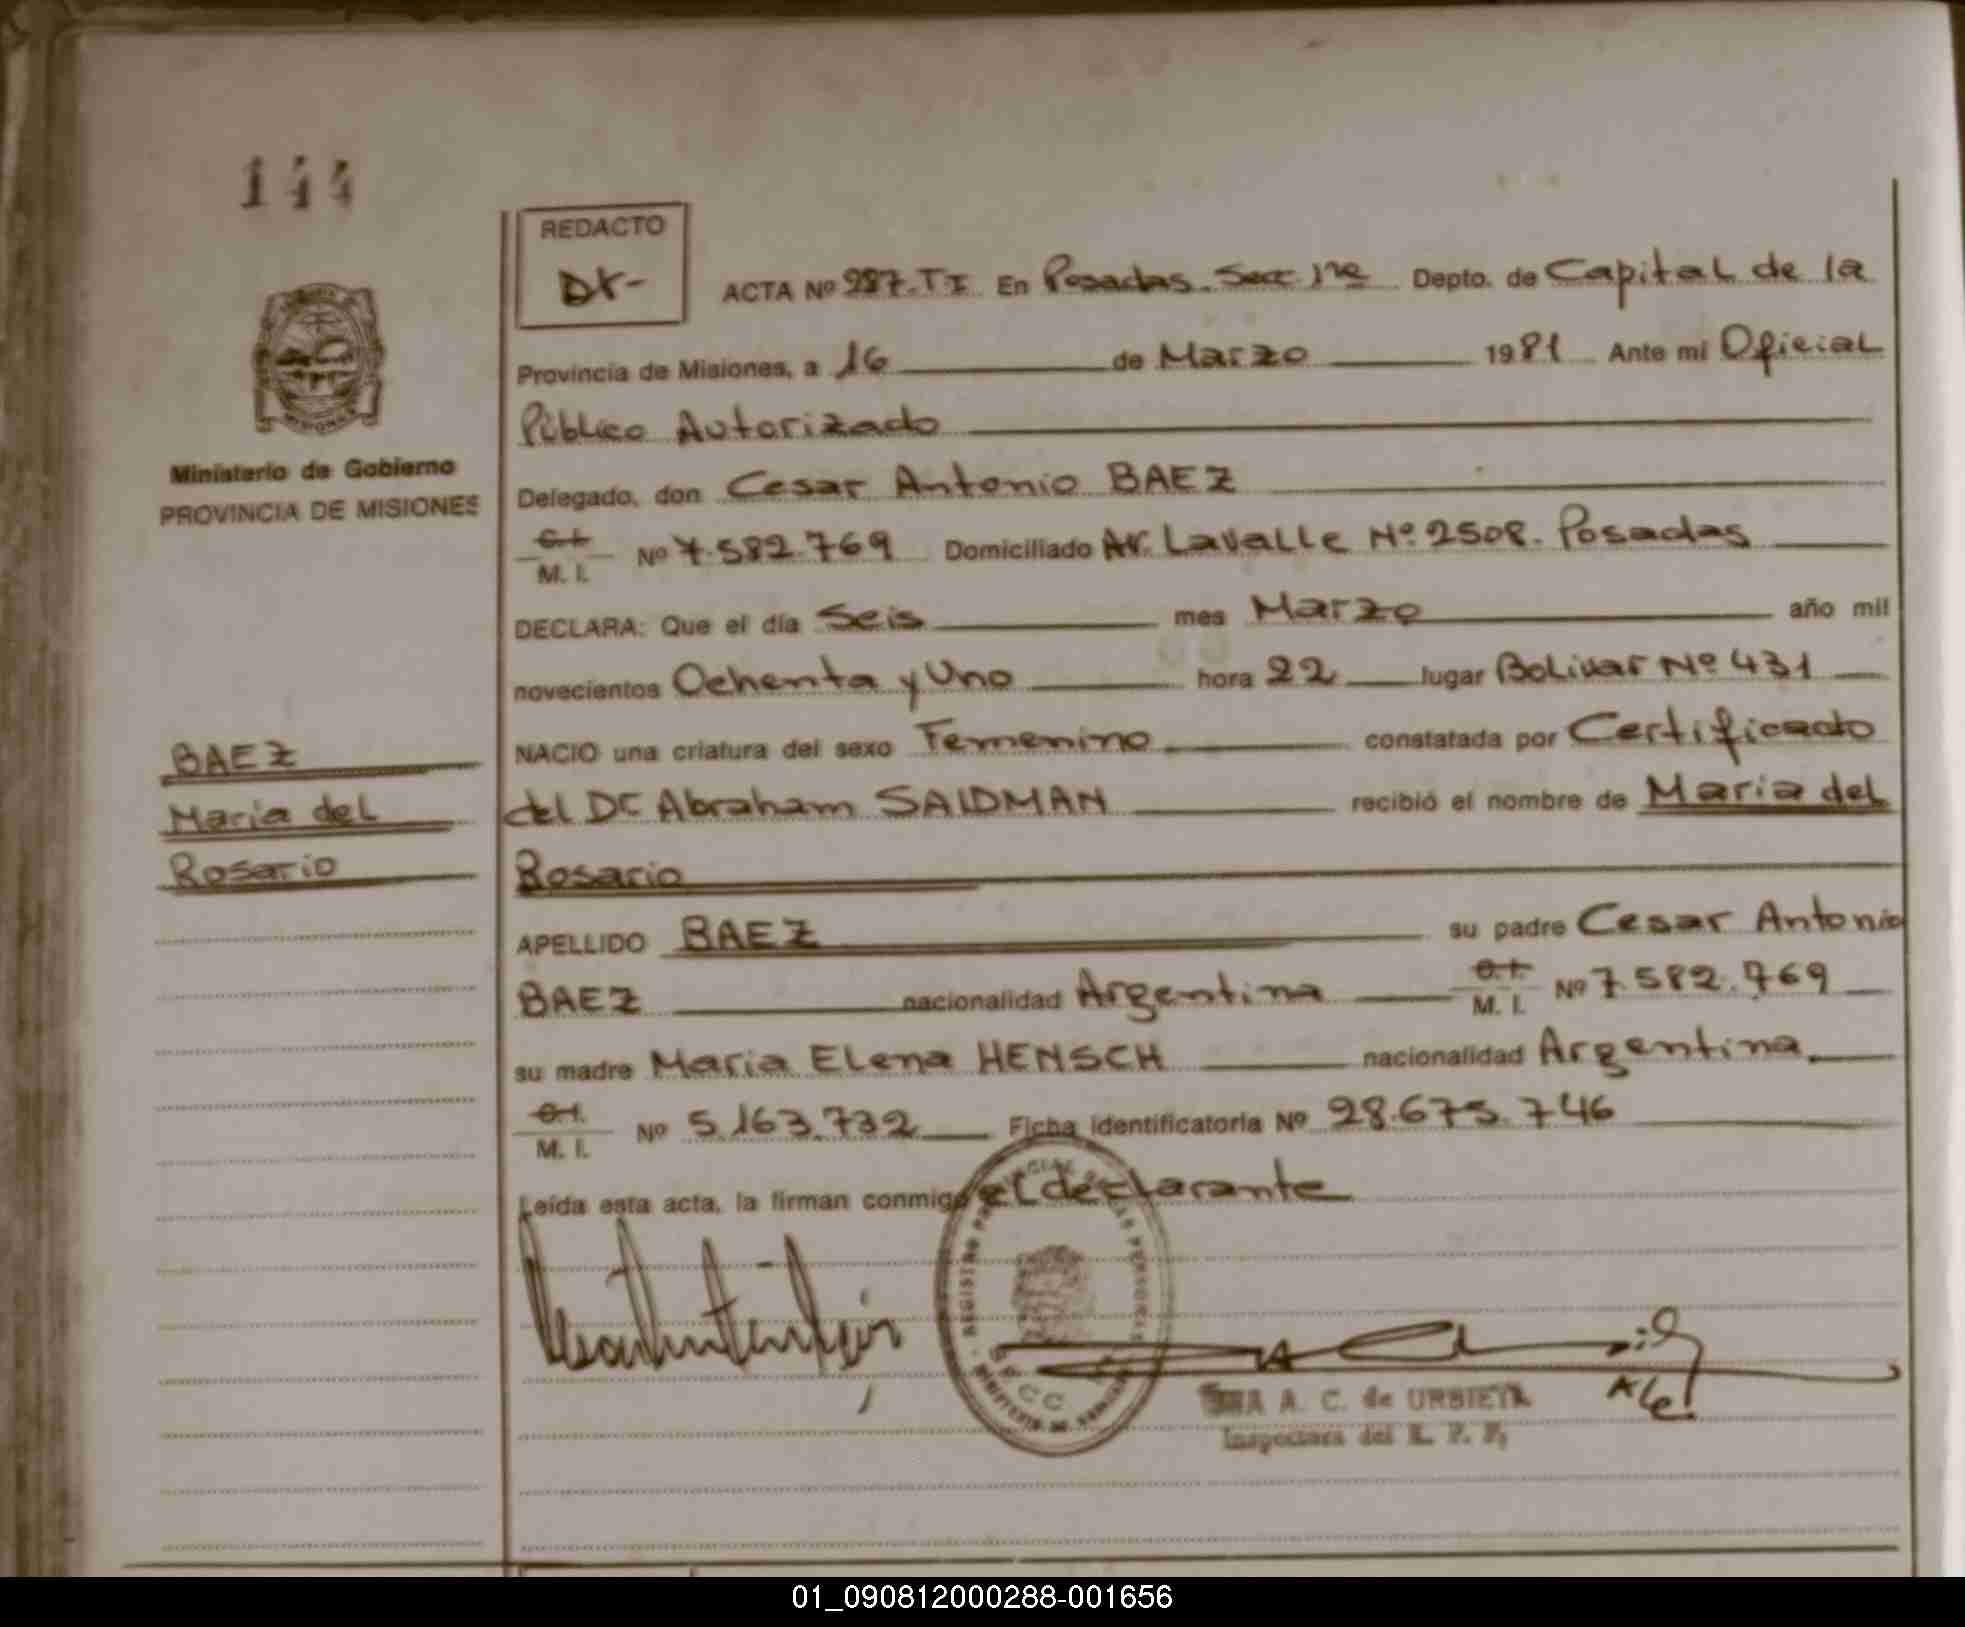 144
REDACTO
ACTA Nº 287. T I En Posadas. Secc. 1ra Depto. de Capital de la
Provincia de Misiones, a 16 de Marzo 1981 Ante mi Oficial
Público Autorizado
Ministerio de Gobierno
PROVINCIA DE MISIONES
Delegado, don Cesar Antonio BAEZ
C.I. M. I. Nº 7.582.769 Domiciliado Av. Lavalle Nº 2508. Posadas
DECLARA: Que el día Seis mes Marzo año mil
novecientos Ochenta y Uno hora 22 lugar Bolivar Nº 431
NACIO una criatura del sexo Femenino constatada por Certificado
del Dr Abraham SAIDMAN recibió el nombre de Maria del
Rosario
BAEZ
Maria del
Rosario
APELLIDO BAEZ su padre Cesar Antonio
BAEZ nacionalidad Argentina C.I. M. I. Nº 7.582.769
su madre Maria Elena HENSCH nacionalidad Argentina
C.I. M. I. Nº 5.163.732 Ficha identificatoria Nº 28.675.746
Leída esta acta, la firman conmigo el declarante
A. C. de URBIETA
Inspectora del R. P. P.
01_090812000288-001656